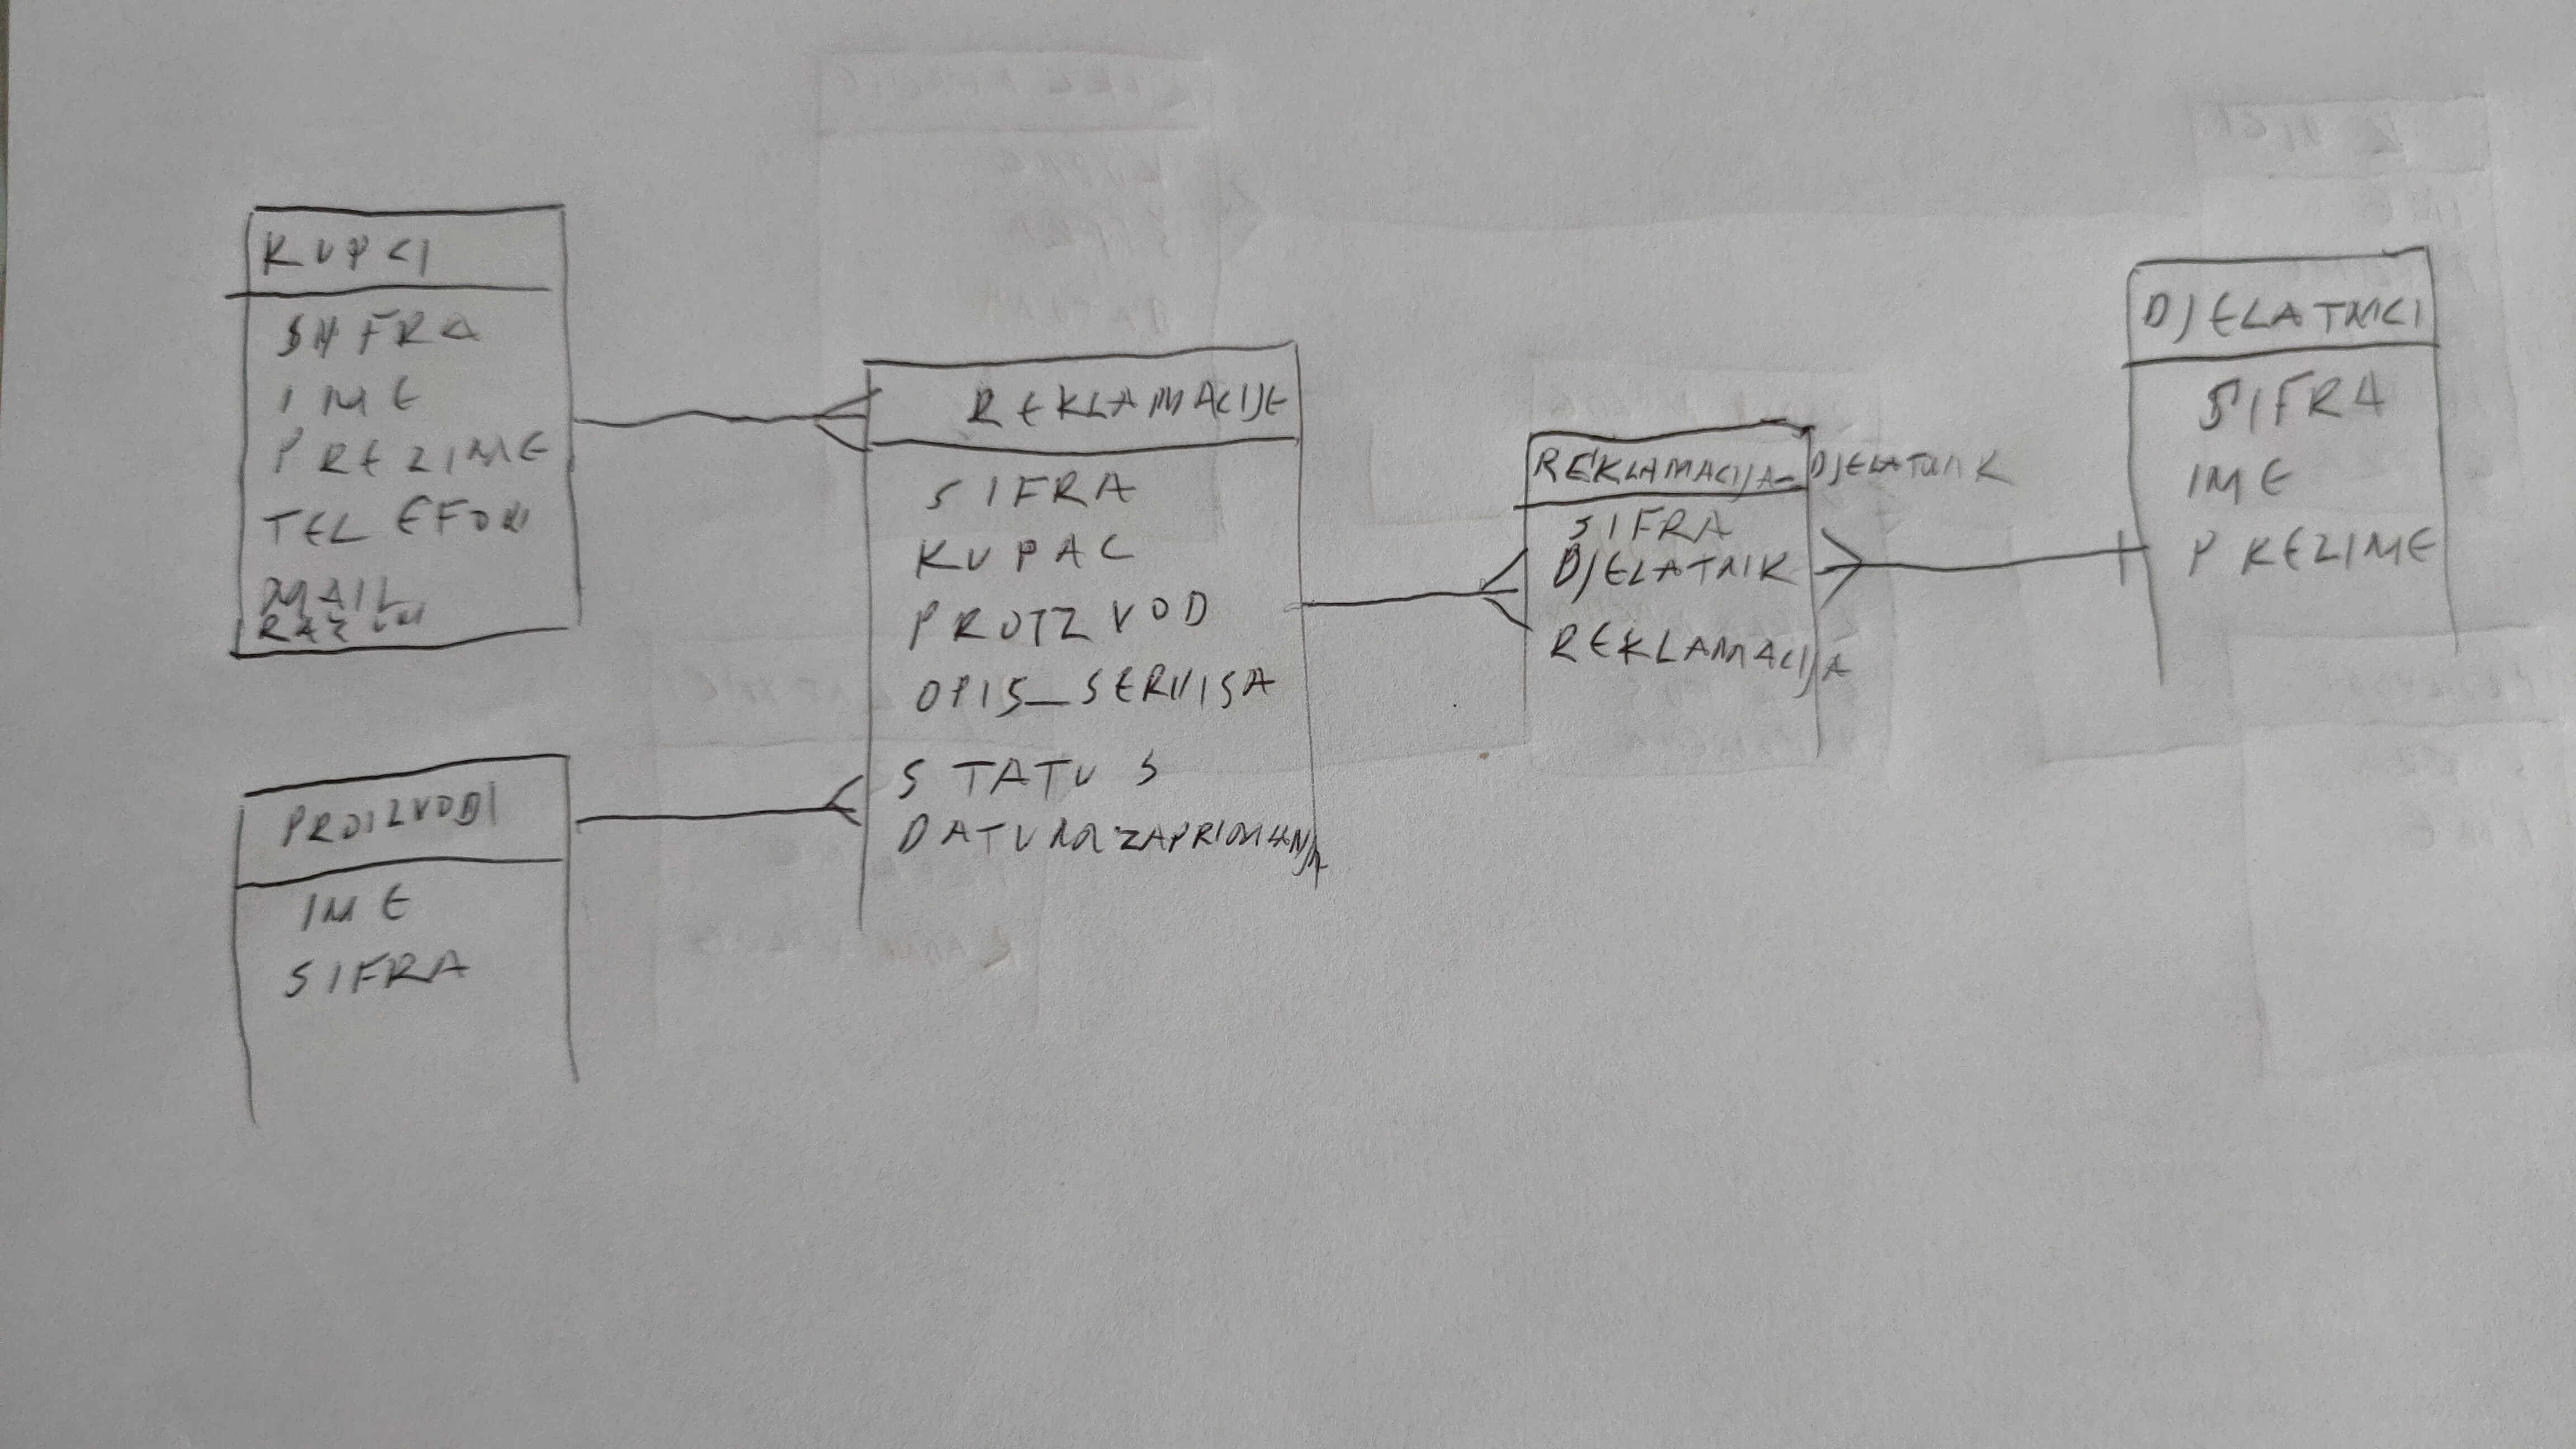 KUPCI
SIFRA
IME
PREZIME
TELEFON
PROIZVODI
IME
SIFRA
REKLAMACIJE
SIFRA
KUPAC
PROIZVOD
OPIS_SERVISA
STATUS
DATUM ZAPRIMANJA
REKLAMACIJA_DJELATNIK
SIFRA
DJELATNIK
REKLAMACIJA
DJELATNICI
SIFRA
IME
PREZIME